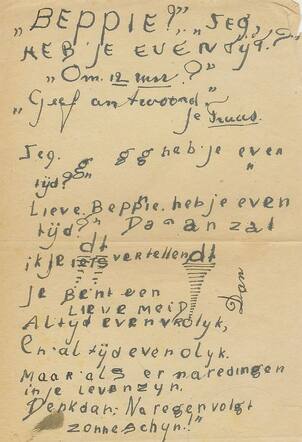 „BEPPIE?" „Zeg,
HEB JE EVEN tijd.?"
„Om 12 uur.?"
„Geef antwoord"
je Truus.
Zeg. g g g heb je even
tijd?"
Lieve. Beppie. heb je even
tijd?" Da-an zat
ik je iets vertellen dt
dt
Dan
Je Bent een
LIEVE MEID
Altyd even vrolyk,
En al tijd even olyk.
Maar als er nare dingen
in je leven zyn.
Denk dan: Na regen volgt
zonneschyn.!"